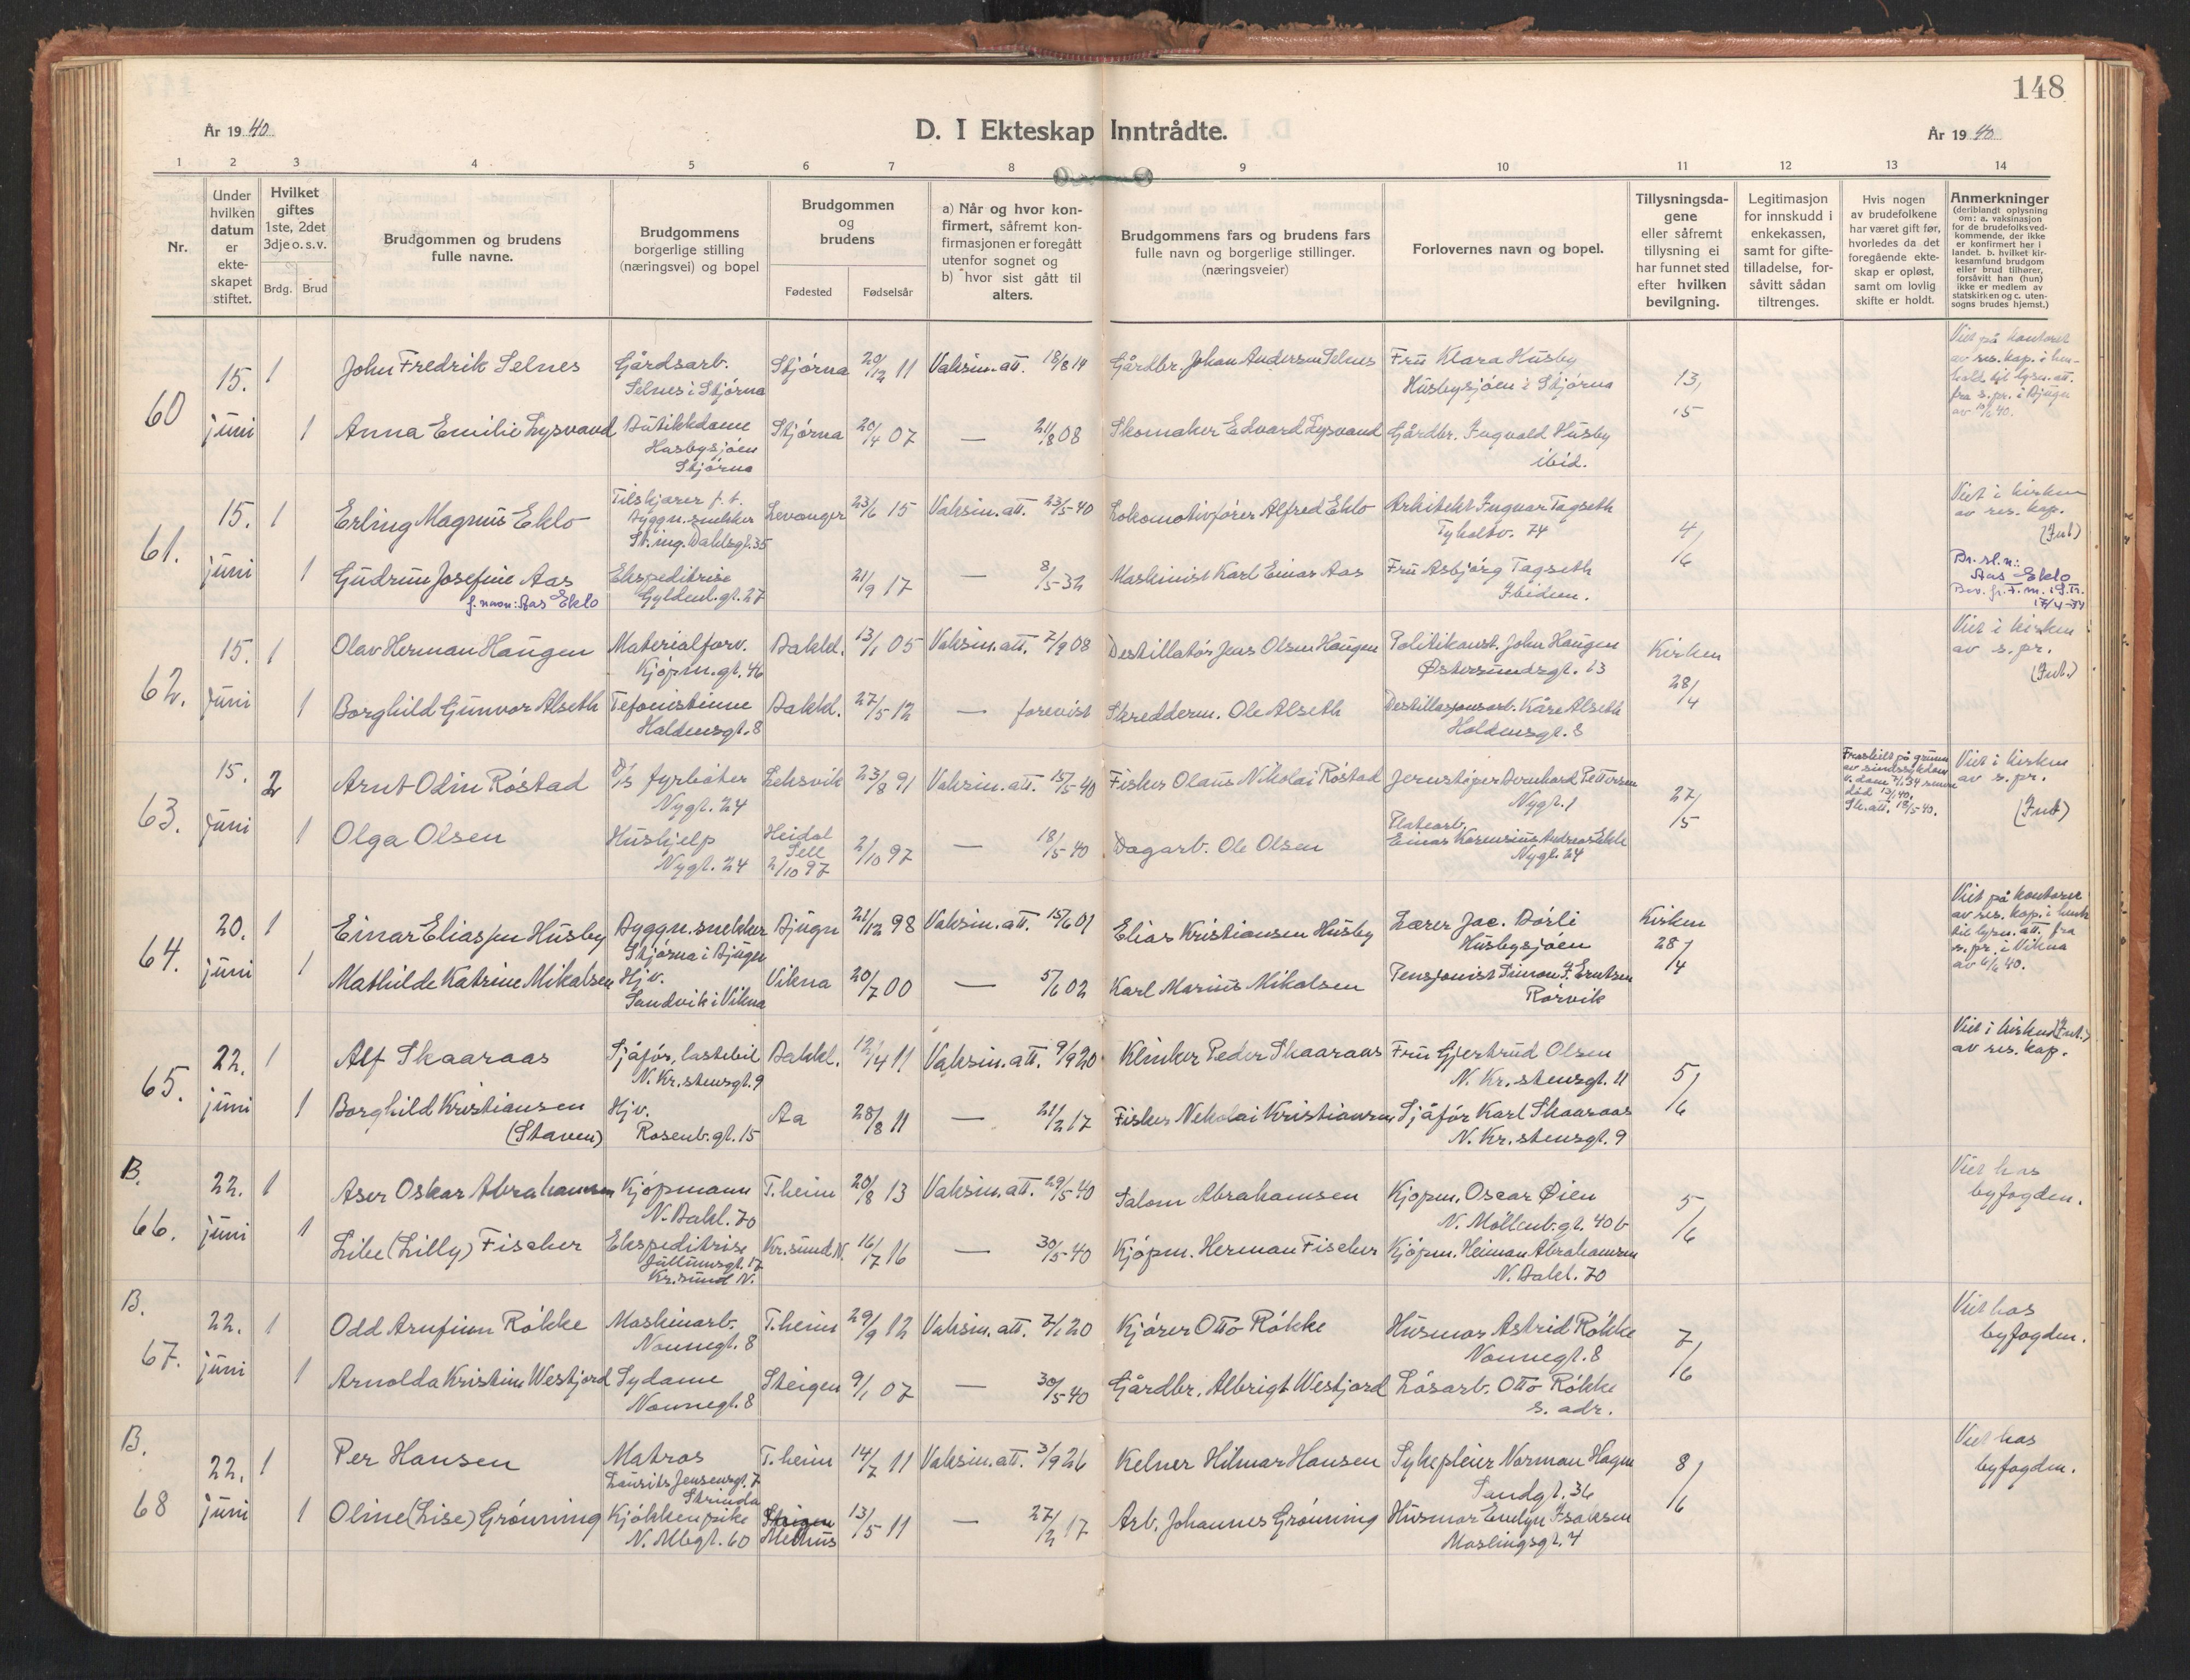 148
År 1940
D. I Ekteskap Inntrådte.
År 1940
1 2 3 4 5 6 7 8 9 10 11 12 13 14
Nr.
Under hvilken datum er ekteskapet stiftet.
Hvilket giftes 1ste, 2det 3dje o. s. v.
Brdg. Brud
Brudgommen og brudens fulle navne.
Brudgommens borgerlige stilling (næringsvei) og bopel
Brudgommen og brudens
Fødested Fødselsår
a) Når og hvor konfirmert, såfremt konfirmasjonen er foregått utenfor sognet og
b) hvor sist gått til alters.
Brudgommens fars og brudens fars fulle navn og borgerlige stillinger. (næringsveier)
Forlovernes navn og bopel.
Tillysningsdagene eller såfremt tillysning ei har funnet sted efter hvilken bevilgning.
Legitimasjon for innskudd i enkekassen, samt for giftetilladelse, forsåvitt sådan tiltrenges.
Hvis nogen av brudefolkene har været gift før, hvorledes da det foregående ekteskap er opløst, samt om lovlig skifte er holdt.
Anmerkninger (deriblandt oplysning om: a. vaksinasjon for de brudefolks vedkommende, der ikke er konfirmert her i landet. b. hvilket kirkesamfund brudgom eller brud tilhører, forsåvitt han (hun) ikke er medlem av statskirken og c. utensogns brudes hjemst.)
60 15. juni
1 John Fredrik Selnes Gårdsarb. Selnes i Stjørna Stjørna 20/12 11 Vaksin.att. 18/8 14 Gårdbr. Johan Andersen Selnes Fru Klara Husby Husbysjøen i Stjørna 13/ 15
Viet på kontoret av res. kap. i henhold til lysn.att. fra s.pr. i Bjugn av 13/6 40.
1 Anna Emilie Lysvand Butikkdame Husbysjøen Stjørna Stjørna 20/4 07 — 21/8 08 Skomaker Edvard Lysvand Gårdbr. Ingvald Husby ibid.
61. 15. juni
1 Erling Magnus Eklo Tilskjærer f.t. Byggn.snekker St.ing.Dahlsgt.35 Levanger 23/6 15 Vaksin.att. 23/5-40 Lokomotivfører Alfred Eklo Arkitekt Ingvar Tagseth Tyholtv. 74 4/6
Viet i kirken av res. kap. (Int)
1 Gudrun Josefine Aas Ekspeditrise Gyldenl.gt.27 21/9 17 — 8/5-32 Maskinist Karl Einar Aas Fru Asbjørg Tagseth Ibidem.
f. navn: Aas Eklo
Br. sl.n: Aas Eklo
62. 15. juni
1 Olav Herman Haugen Materialforv. Kjøpm.gt.46 Bakkl. 13/1 05 Vaksin.att. 7/9 08 Destillatør Jens Olsen Haugen Politikonst. John Haugen Østersundsgt. 13 Kirken 28/4
Viet i kirken av s. pr. (Int.)
1 Borghild Gunvor Alseth Tefonistinne Haldensgt.8 Bakkl. 27/5 12 — forevist Skredderm. Ole Alseth Destillasjonsarb. Kåre Alseth Haldensgt. 8
63. 15. juni
2 Arnt Odin Røstad D/s fyrbøter Nygt. 24 Leksvik 23/8 91 Vaksin.att. 15/5-40 Fisker Olaus Nikolai Røstad Jernstøper Bernhard Pettersen Nygt. 1 27/5
Fraskilt på grunn av sindssykdom v. dom 7/1.34 senere død 13/1 40. Sk.att. 18/5-40.
Viet i kirken av s. pr. (Int)
1 Olga Olsen Hushjelp Nygt. 24 Heidal Sell 2/10 97 2/10 97 — 18/5-40 Dagarb. Ole Olsen Platearb. Einar Nygt. 24
64. 20. juni
1 Einar Eliassen Husby Byggn.snekker Stjørna i Bjugn Bjugn 21/12 98 Vaksin.att. 15/6 01 Elias Kristiansen Husby Lærer Jac. Dørli Husbysjøen Kirken 28/4
Viet på kontoret av res. kap. i henh til lysn.att. fra s. pr. i Vikna av 6/6 40.
1 Mathilde Katrine Mikalsen Hjv. Sandvik i Vikna Vikna 20/7 00 — 5/6 02 Karl Marius Mikalsen Pensjonist Simon F. Erntsen Rørvik
65. 22. juni
1 Alf Skaaraas Sjåfør, lastebil N. Kr.stensgt.9 Bakkl. 12/4 11 Vaksin.att. 9/9 20 Klinker Peder Skaaraas Fru Gjertrud Olsen N. Kr.stensgt. 11 5/6
Viet i kirken (Int.) av res. kap.
1 Borghild Kristiansen (Staven) Hjv. Rosenb.gt.15 Aa 28/8 11 — 21/2 17 Fisker Nekolai Kristiansen Sjåfør Karl Skaaraas N. Kr.stensgt. 9
B. 66. 22. juni
1 Aser Oskar Abrahamsen Kjøpmann N. Bakl. 70 T.heim 20/8 13 Vaksin.att. 29/5 40 Salom Abrahamsen Kjøpm. Oscar Øien N. Møllenb.gt. 40 b 5/6
Viet hos byfogden.
1 Libe (Lilly) Fischer Ekspeditrise Jullumsgt. 17 Kr.sund N. Kr.sund N. 16/17 16 — 30/5-40 Kjøpm. Herman Fischer Kjøpm. Heiman Abrahamsen N. Bakl. 70
B. 67. 22. juni
1 Odd Arnfinn Røkke Maskinarb. Nonnegt. 8 T.heim 29/9 12 Vaksin.att. 7/1 20 Kjører Otto Røkke Husmor Astrid Røkke Nonnegt. 8 7/6
Viet hos byfogden.
1 Arnolda Kristine Westjord Sydame Nonnegt. 8 Steigen 9/1 07 — 30/5-40 Gårdbr. Albrigt Westjord Løsarb. Otto Røkke s. adr.
B. 68 22. juni
1 Per Hansen Matros Lauritz Jensensgt. 7 Strinda T.heim 14/7 11 Vaksin.att. 3/9 26 Kelner Hilmar Hansen Sykepleier Norman Hagen Sandgt. 36 8/6
Viet hos byfogden.
1 Oline (Lise) Grønning Kjøkkenpike N. Allegt. 60 Melhus 13/5 11 — 27/2 17 Arb. Johannes Grønning Husmor Evelyn Isaksen Maslingsgt. 4